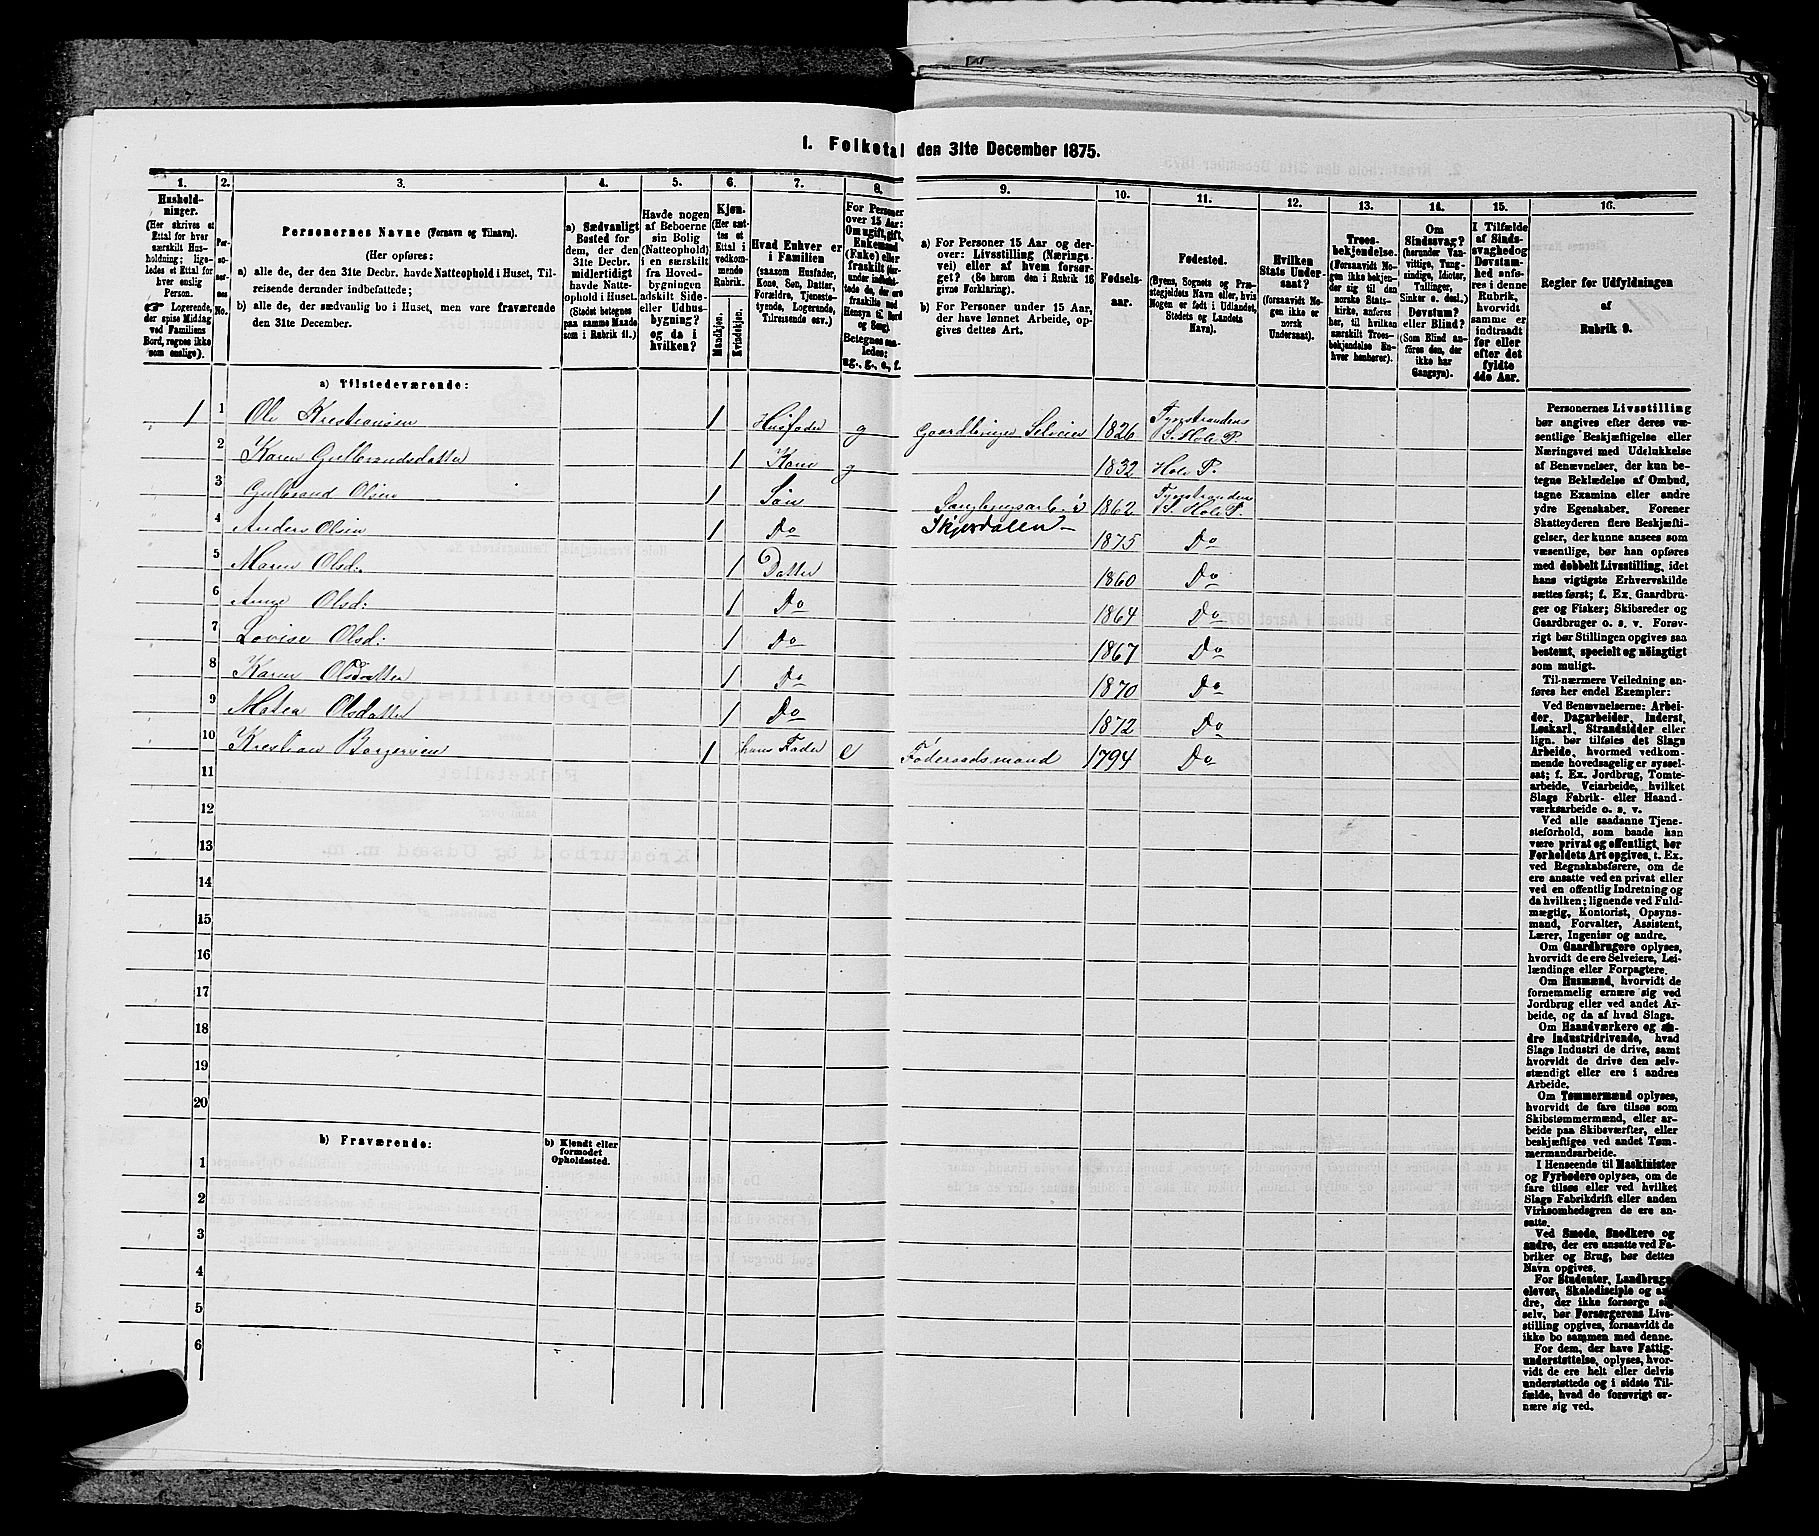 1. Folketal den 31te December 1875.
1. 2. 3. 4. 5. 6. 7. 8. 9. 10. 11. 12. 13. 14. 15. 16.
Hushold-
ninger.
(Her skrives et
Ettal for hver
særskilt Hus-
holdning; lige-
ledes et Ettal for
hver enslig
Person.
☞ Logerende,
der spise Middag
ved Familiens
Bord, regnes ikke
som enslige).
Per-
so-
ner-
nes
No.
Personernes Navne (Fornavn og Tilnavn).
(Her opføres:
a) alle de, der den 31te Decbr. havde Natteophold i Huset, Til-
reisende derunder indbefattede;
b) alle de, der sædvanlig bo i Huset, men vare fraværende
den 31te December.
a) Sædvanligt
Bosted for
dem, der den
31te Decbr.
midlertidigt
havde Natte-
ophold i Huset.
(Stedet betegnes
paa samme Maade
som i Rubrik 11.)
Havde nogen
af Beboerne
sin Bolig
(Natteophold)
i en særskilt
fra Hoved-
bygningen
adskilt Side-
eller Udhus-
bygning?
og da i
hvilken?
Kjøn.
(Her sæt-
tes et
Ettal i
vedkom-
mende
Rubrik.
Mandkjøn.
Kvindekjøn.
Hvad Enhver er
i Familien
(saasom Husfader,
Kone, Søn, Datter,
Forældre, Tjeneste-
tyende, Logerende,
Tilreisende osv.)
For Personer
over 15 Aar:
Om ugift, gift,
Enkemand
(Enke) eller
fraskilt
ug., g., e., f.
a) For Personer 15 Aar og der-
over: Livsstilling (Nærings-
vei) eller af hvem forsør-
get? (Se herom den i Rubrik 16
givne Forklaring).
b) For Personer under 15 Aar,
der have lønnet Arbeide, op-
gives dettes Art.
Fødsels-
aar.
Fødested.
(Byens, Sognets og Præ-
stegjeldets Navn eller, hvis
Nogen er født i Udlandet,
Stedets og Landets
Navn).
Hvilken
Stats Under-
saat?
(forsaavidt No-
gen ikke er
norsk
Undersaat).
Troes-
bekjendelse.
(Forsaavidt No-
gen ikke bekjen-
der sig til den
norske Stats-
kirke, anføres
her, til hvilken
særskilt Troes-
bekjendelse En-
hver henhører).
Om
Sindssvag?
(herunder Van-
vittige, Tung-
sindige, Idioter,
Tullinger,
Sinker o. desl.)
Døvstum?
eller Blind?
(Som Blind an-
føres den, der
ikke har
Gangsyn).
I Tilfælde
af Sinds-
svaghed og
Døvstum-
hed anfø-
res i denne
Rubrik,
hvorvidt
samme er
indtraadt
før eller
efter det
fyldte
4de Aar.
Regler for Udfyldningen
af
Rubrik 9.
a) Tilstedeværende:
1 1 Ole Kristiansen 1 Husfader g Gaardbruger Selveier 1826 Tyristrandens S. Hole P.
2 Karen Gulbrandsdatter 1 Kone g 1832 Hole P.
3 Gulbrand Olsen 1 Søn 1862 Tyristrandens S. Hole P.
4 Anders Olsen 1 Do Skjærdalen 1875 Do
5 Maren Olsd: 1 Datter 1860 Do
6 Anne Olsd: 1 Do 1864 Do
7 Lovise Olsd: 1 Do 1867 Do
8 Karen Olsdatter 1 Do 1870 Do
9 Matea Olsdatter 1 Do 1872 Do
10 Kristian Borgersen 1 hans Fader e Føderaadsmand 1794 Do
11
12
13
14
15
16
17
18
19
20
b) Fraværende:
b) Kjendt eller
formodet
Opholdssted.
1
2
3
4
5
6
Personernes Livsstilling
bør angives efter deres væ-
sentlige Beskjæftigelse eller
Næringsvei med Udelukkelse
af Benævnelser, der kun be-
tegne Beklædelse af Ombud,
tagne Examina eller andre
ydre Egenskaber. Forener
Skatteyderen flere Beskjæfti-
gelser, der kunne ansees som
væsentlige, bør han opføres
med dobbelt Livsstilling, idet
hans vigtigste Erhvervskilde
sættes først; f. Ex. Gaardbru-
ger og Fisker; Skibsreder og
Gaardbruger o. s. v. Forøv-
rigt bør Stillingen opgives saa
bestemt, specielt og nøiagtigt
som muligt.
Til nærmere Veiledning an-
føres her endel Exempler:
Ved Benævnelserne: Arbei-
der, Dagarbeider, Inderst,
Løskarl, Strandsidder eller
lign. bør tilføies det Slags
Arbeide, hvormed vedkom-
mende hovedsagelig er syssel-
sat; f. Ex. Jordbrug, Tomte-
arbeide, Veiarbeide, hvilket
Slags Fabrik- eller Haand-
værksarbeide o. s. v.
Ved alle saadanne Tjene-
steforhold, som baade kan
være privat og offentligt, bør
Forholdets Art opgives, t. Ex.
ved Regnskabsførere, om de
ere ansatte ved en privat eller
ved en offentlig Indretning og
da hvilken; lignende ved Fuld-
mægtig, Kontorist, Opsyns-
mand, Forvalter, Assistent,
Lærer, Ingeniør og andre.
Om Gaardbrugere oplyses,
hvorvidt de ere Selveiere, Lei-
lændinge eller Forpagtere.
Om Husmænd, hvorvidt de
fornemmelig ernære sig ved
Jordbrug eller ved andet Ar-
beide, og da af hvad Slags.
Om Haandværkere og an-
dre Industridrivende, hvad
Slags Industri de drive, samt
hvorvidt de drive den selv-
stændigt eller ere i andres
Arbeide.
Om Tømmermænd oplyses,
hvorvidt de fare tilsøs som
Skibstømmermænd, eller ar-
beide paa Skibsværfter, eller
beskjæftiges ved andet Tøm-
mermandsarbeide.
I Henseende til Maskinister
og Fyrbødere oplyses, om de
fare tilsøs eller ved hvilket
Slags Fabrikdrift eller anden
Virksomhedsgren de ere an-
satte.
Ved Smede, Snedkere og
andre, der ere ansatte ved Fa-
briker og Brug, bør dettes
Navn opgives.
For Studenter, Landbrugs-
elever, Skoledisciple og an-
dre, der ikke forsørge sig
selv, bør Forsørgerens Livs-
stilling opgives, forsaavidt de
ikke bo sammen med denne.
For dem, der have Fattig-
understøttelse, oplyses, hvor-
vidt de ere helt eller delvis
understøttede og i sidste Til-
fælde, hvad de forøvrigt er-
nære sig ved.